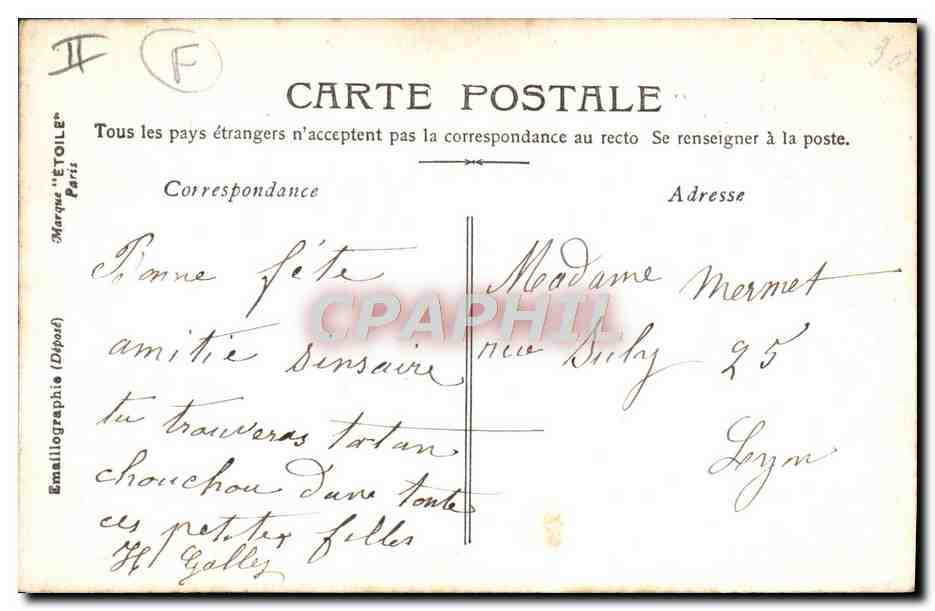 II F
CARTE POSTALE
Tous les pays étrangers n'acceptent pas la correspondance au recto Se renseigner à la poste.
Correspondance
Bonne fête
amitié sinsaire
tu trouveras tortan
chouchou dans toute
ces petites filles
H Galley
Adresse
Madame Mermet
rue Sully 25
Lyon
Marque "ÉTOILE" Paris
Emaillographie (Déposé)
CPAPHIL